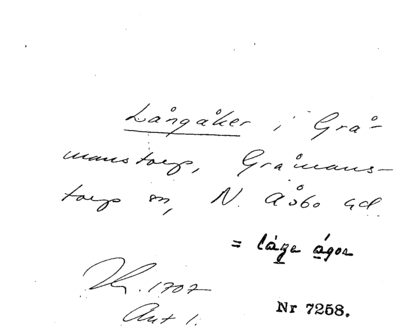 Långåker i Grå-
manstorp, Gråmans-
torp sn, N. Åsbo hd.
= låga ågor
1707
Avt 1.
Nr 7258.